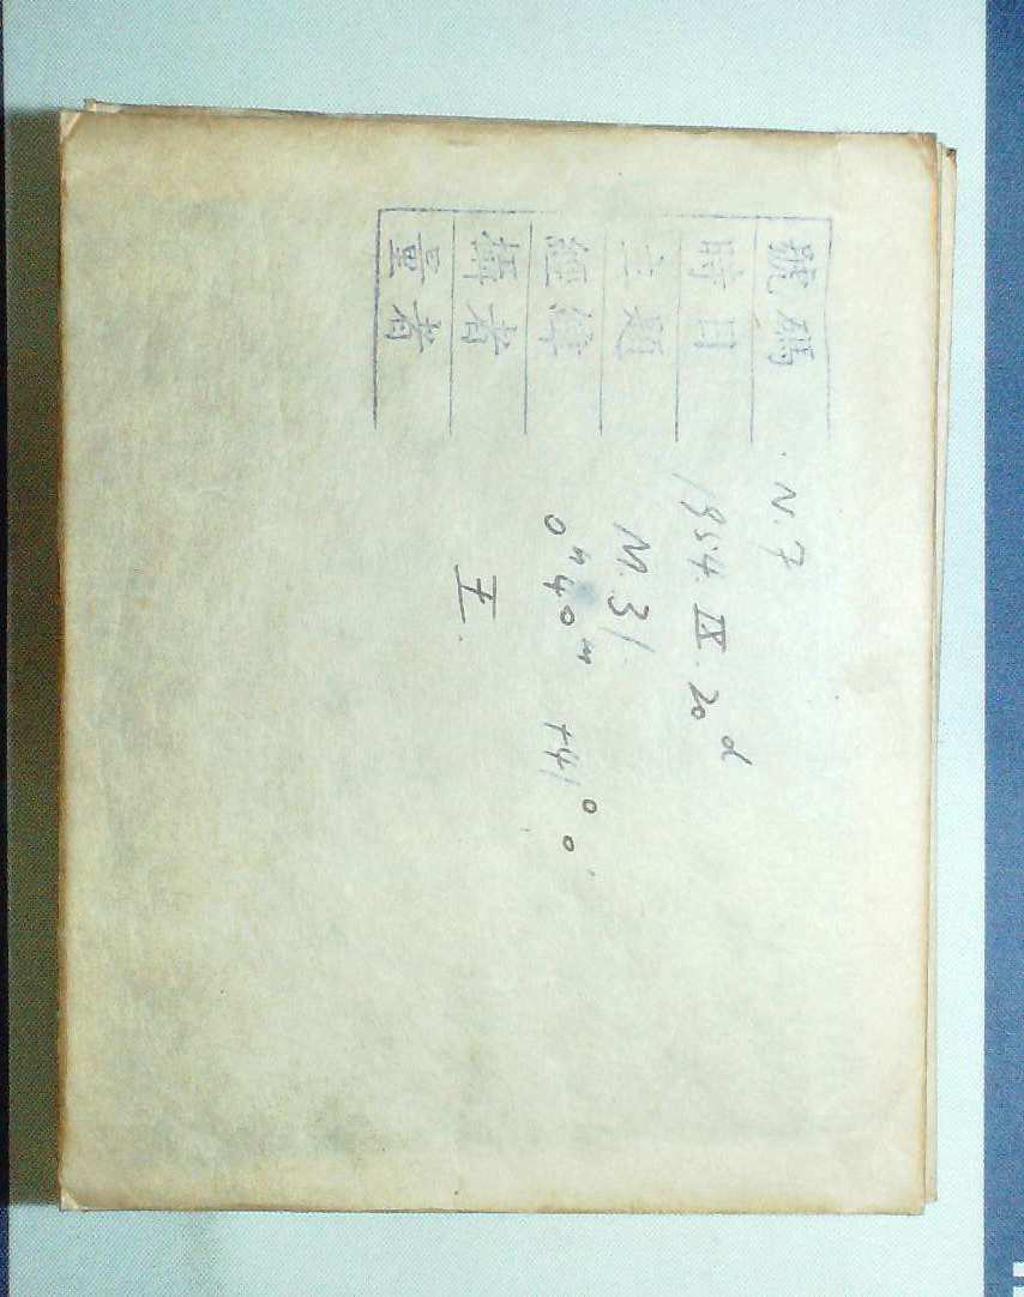 號碼 N.7
時日 1954. IX. 20d
主題 M.31.
經緯 0h40m +41°0'
攝者 王.
量者